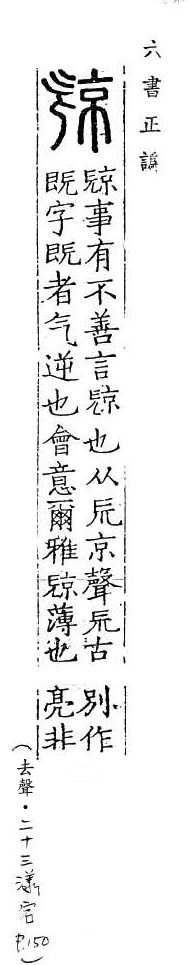 六書正譌
𣄴事有不善言𣄴也从旡京聲旡古
既字既者气逆也會意爾雅𣄴薄也
別作
亮非
(去聲・二十三漾宕 P.150)